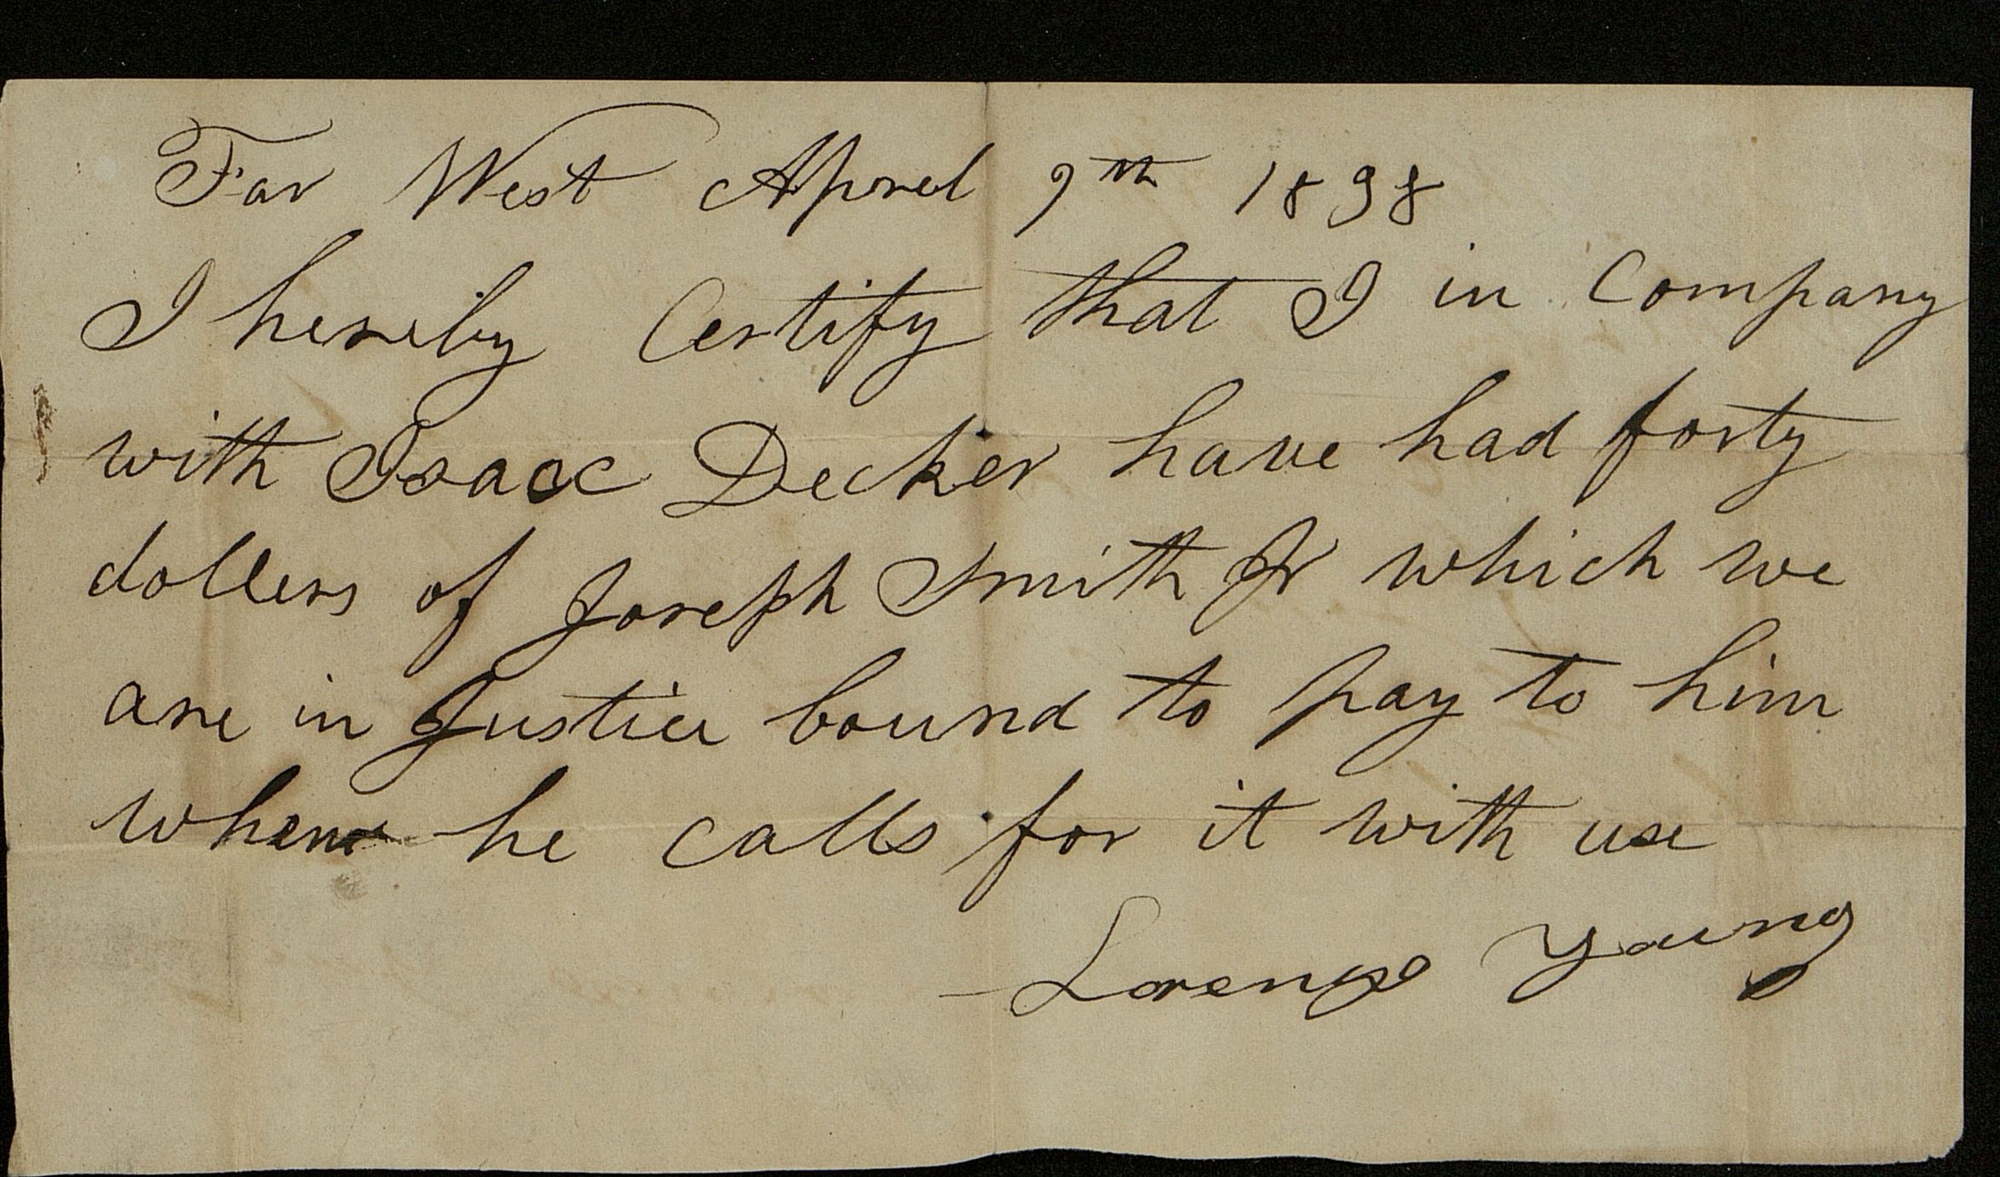 Far West Aprel 9th 1838
I hereby Certify that I in Company
with Isaac Decker have had forty
dollers of Joseph Smith Jr which we
are in Justice bound to pay to him
when he calls for it with use
Lorenzo Young